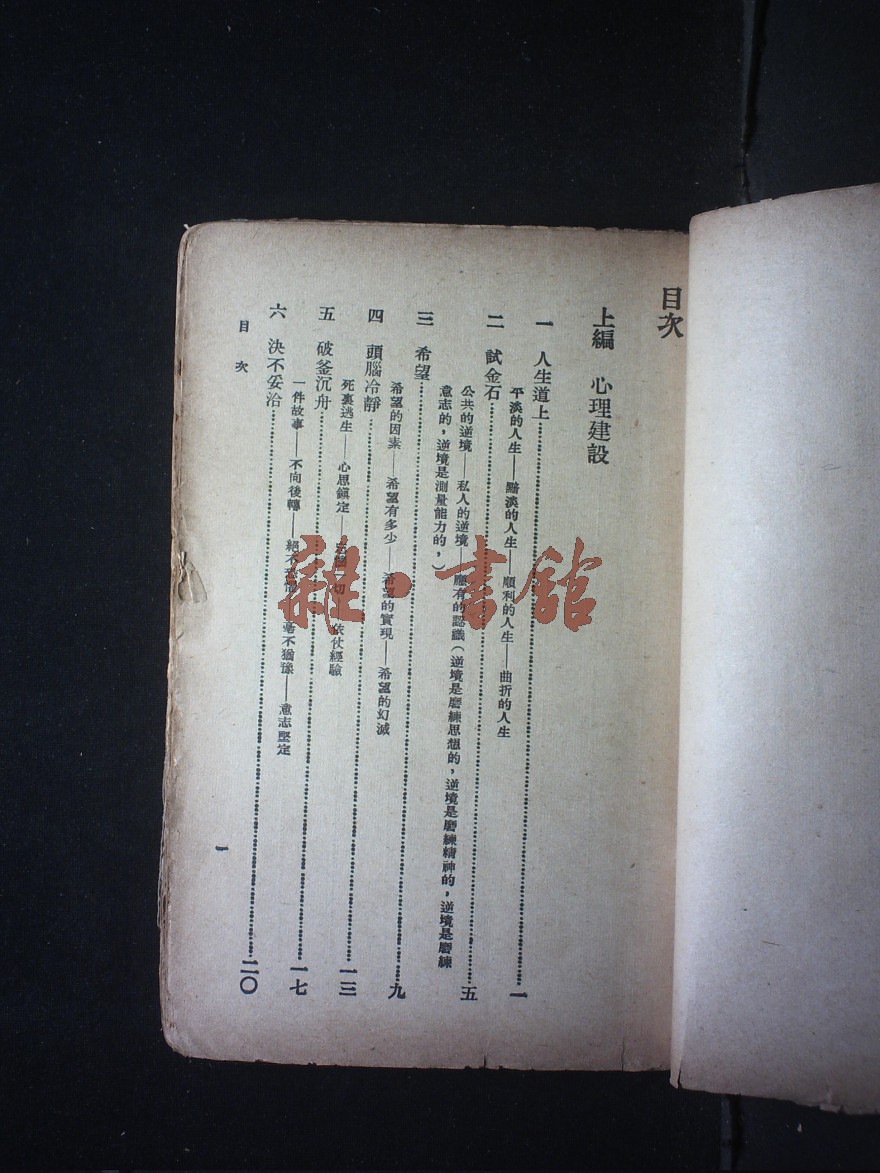 目次
上編 心理建設
一 人生道上……一
平淡的人生——黯淡的人生——順利的人生——曲折的人生
二 試金石……五
公共的逆境——私人的逆境——應有的認識(逆境是磨練思想的,逆境是磨練精神的,逆境是磨練
意志的,逆境是測量能力的,)
三 希望……九
希望的因素——希望有多少——希望的實現——希望的幻滅
四 頭腦冷靜……一三
死裏逃生——心思鎮定——切——依仗經驗
五 破釜沉舟……一七
一件故事——不向後轉——絕不——毫不猶豫——意志堅定
六 決不妥洽……二〇
目次
一
雜·書館